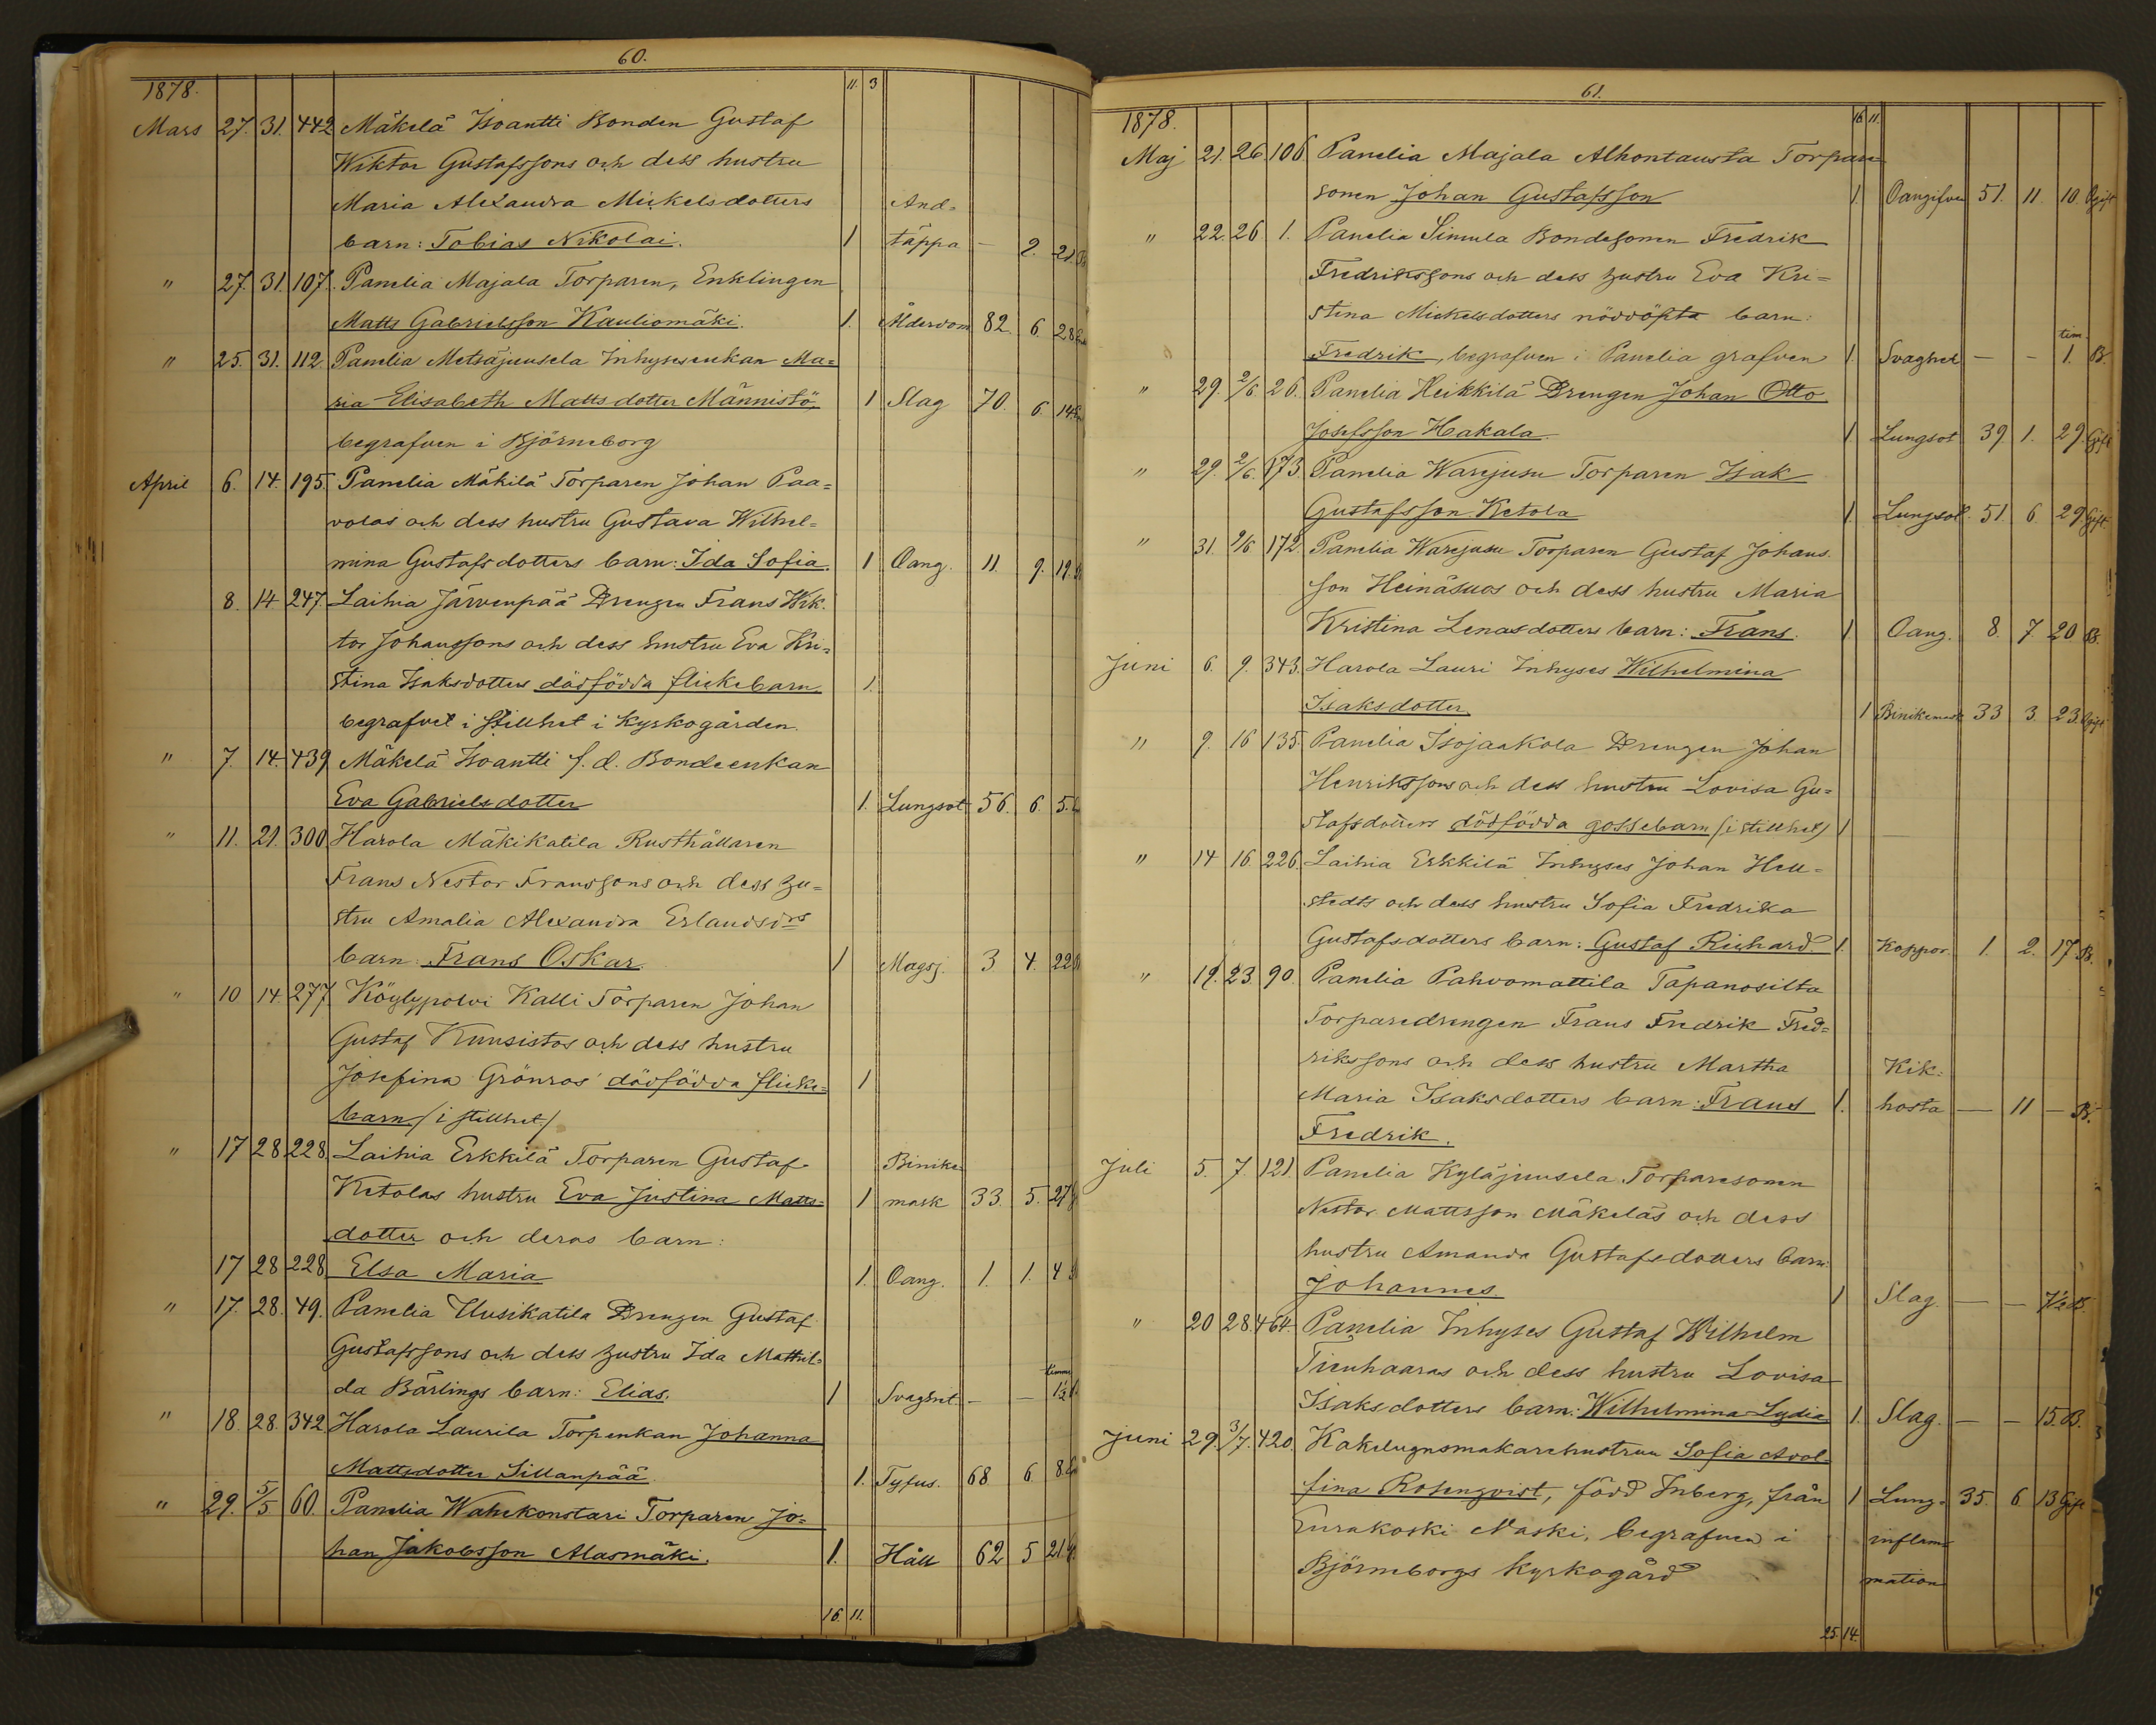 60.
1878. 11. 3
Mars 27. 31. 442 Mäkelä Isoantti Bonden Gustaf
Wiktor Gustafssons och dess hustru
Maria Alexandra Mickelsdotters And=
barn: Tobias Nikolai. 1 täppa — 2. 21. B
" 27. 31. 107. Panelia Majala Torparen, Enklingen
Matts Gabrielsson Kauliomäki. 1. Ålderdom 82. 6. 28
" 25. 31. 112. Panelia Metsäjuusela Inhysesenkan Ma=
ria Elisabeth Mattsdotter Männistö, 1 Slag 70. 6. 14
begrafven i Björneborg
April 6. 14. 195. Panelia Mäkilä Torparen Johan Paa=
volas och dess hustru Gustava Wilhel=
mina Gustafsdotters barn: Ida Sofia. 1 Oang. 11. 9. 19.
8. 14 247. Laihia Järvenpää Drengen Frans Wik.
tor Johanssons och dess hustru Eva Kri=
stina Isaksdotters dödfödda flickebarn, 1.
begrafvet i stillhet i kyrkogården.
" 7. 14. 439 Mäkelä Isoantti f. d. Bondeenkan
Eva Gabrielsdotter 1. Lungsot 56. 6. 5.
" 11. 21. 300 Harola Mäkikatila Rusthållaren
Frans Nestor Franssons och dess hu=
stru Amalia Alexandra Erlandsdrs
barn: Frans Oskar. 1 Magsj. 3 4. 22
" 10 14. 277 Köylypolvi Kalli Torparen Johan
Gustaf Kuusistos och dess hustru
Josefina Grönros' dödfödda flicke= 1
barn / i stillhet /
" 17 28 228. Laihia Erkkilä Torparen Gustaf Binike
Ketolas hustru Eva Justina Matts= 1 mask 33. 5. 27
dotter och deras barn:
17 28 228 Elsa Maria 1. Oang. 1. 1. 4
" 17. 28. 49. Panelia Uusikatila Drengen Gustaf
Gustafssons och dess hustru Ida Mathil= timme
da Bärlings barn: Elias. 1 Svaghet — — 1½
" 18. 28. 342. Harola Laurila Torpenkan Johanna
Mattsdotter Sillanpää. 1. Tyfus. 68 6 8.
" 29. 5/5. 60. Panelia Wahekonstari Torparen Jo=
han Jakobsson Alasmäki. 1. Håll 62 5 21.
16. 11.
61.
1878. 16. 11.
Maj 21. 26. 106 Panelia Majala Alhontausta Torpare
sonen Johan Gustafsson 1. Oangifven 51. 11. 10. Ogift
" 22. 26. 1. Panelia Simula Bondesonen Fredrik
Fredrikssons och dess hustru Eva Kri=
stina Mickelsdotters nöddöpta barn: tim.
Fredrik, begrafven i Panelia grafven 1. Svaghet — — 1. B.
" 29. 2/6. 26. Panelia Heikkilä Drengen Johan Otto
Josefsson Hakala. 1 Lungsot 39 1. 29. Gift
" 29. 2/6. 173. Panelia Warejusu Torparen Isak
Gustafsson Ketola 1. Lungsot 51. 6. 29 Gift.
" 31. 9/6 172. Panelia Warejusu Torparen Gustaf Johans.
son Heinäsuos och dess hustru Maria
Kristina Lenasdotters barn: Frans. 1 Oang. 8. 7 20 B.
Juni 6. 9. 343. Harola Lauri Inhyses Wilhelmina
Isaksdotter. 1 Binikemask 33 3. 23. Ogift
" 9. 16 135. Panelia Isojaakola Drengen Johan
Henrikssons och dess hustru Lovisa Gu=
stafsdotters dödfödda gossebarn / i stillhet / 1
" 14 16. 226. Laihia Erkkilä Inhyses Johan Hell=
stedts och dess hustru Sofia Fredrika
Gustafsdotters barn: Gustaf Richard. 1. Koppor. 1. 2. 17 B.
" 19. 23. 90. Panelia Pahvomattila Tapanosilta
Torparedrengen Frans Fredrik Fred=
rikssons och dess hustru Martha Kik=
Maria Isaksdotters barn: Frans 1. hosta — 11 — B.
Fredrik.
Juli 5. 7. 121. Panelia Kyläjuusela Torparesonen
Nestor Mattsson Mäkeläs och dess
hustru Amanda Gustafsdotters barn:
Johannes. 1 Slag. — — 7½ B.
" 20 28. 464. Panelia Inhyses Gustaf Wilhelm
Tienhaaras och dess hustru Lovisa
Isaksdotters barn: Wilhelmina Lydia 1. Slag. — — 15. B.
Juni 29. 3/7. 420. Kakelugnsmakarehustrun Sofia Adol=
fina Rosenqvist, född Inberg, från 1 Lung= 35. 6 13 Gift
Eurakoski Naski, begrafven i inflam=
Björneborgs kyrkogård mation
25. 14.